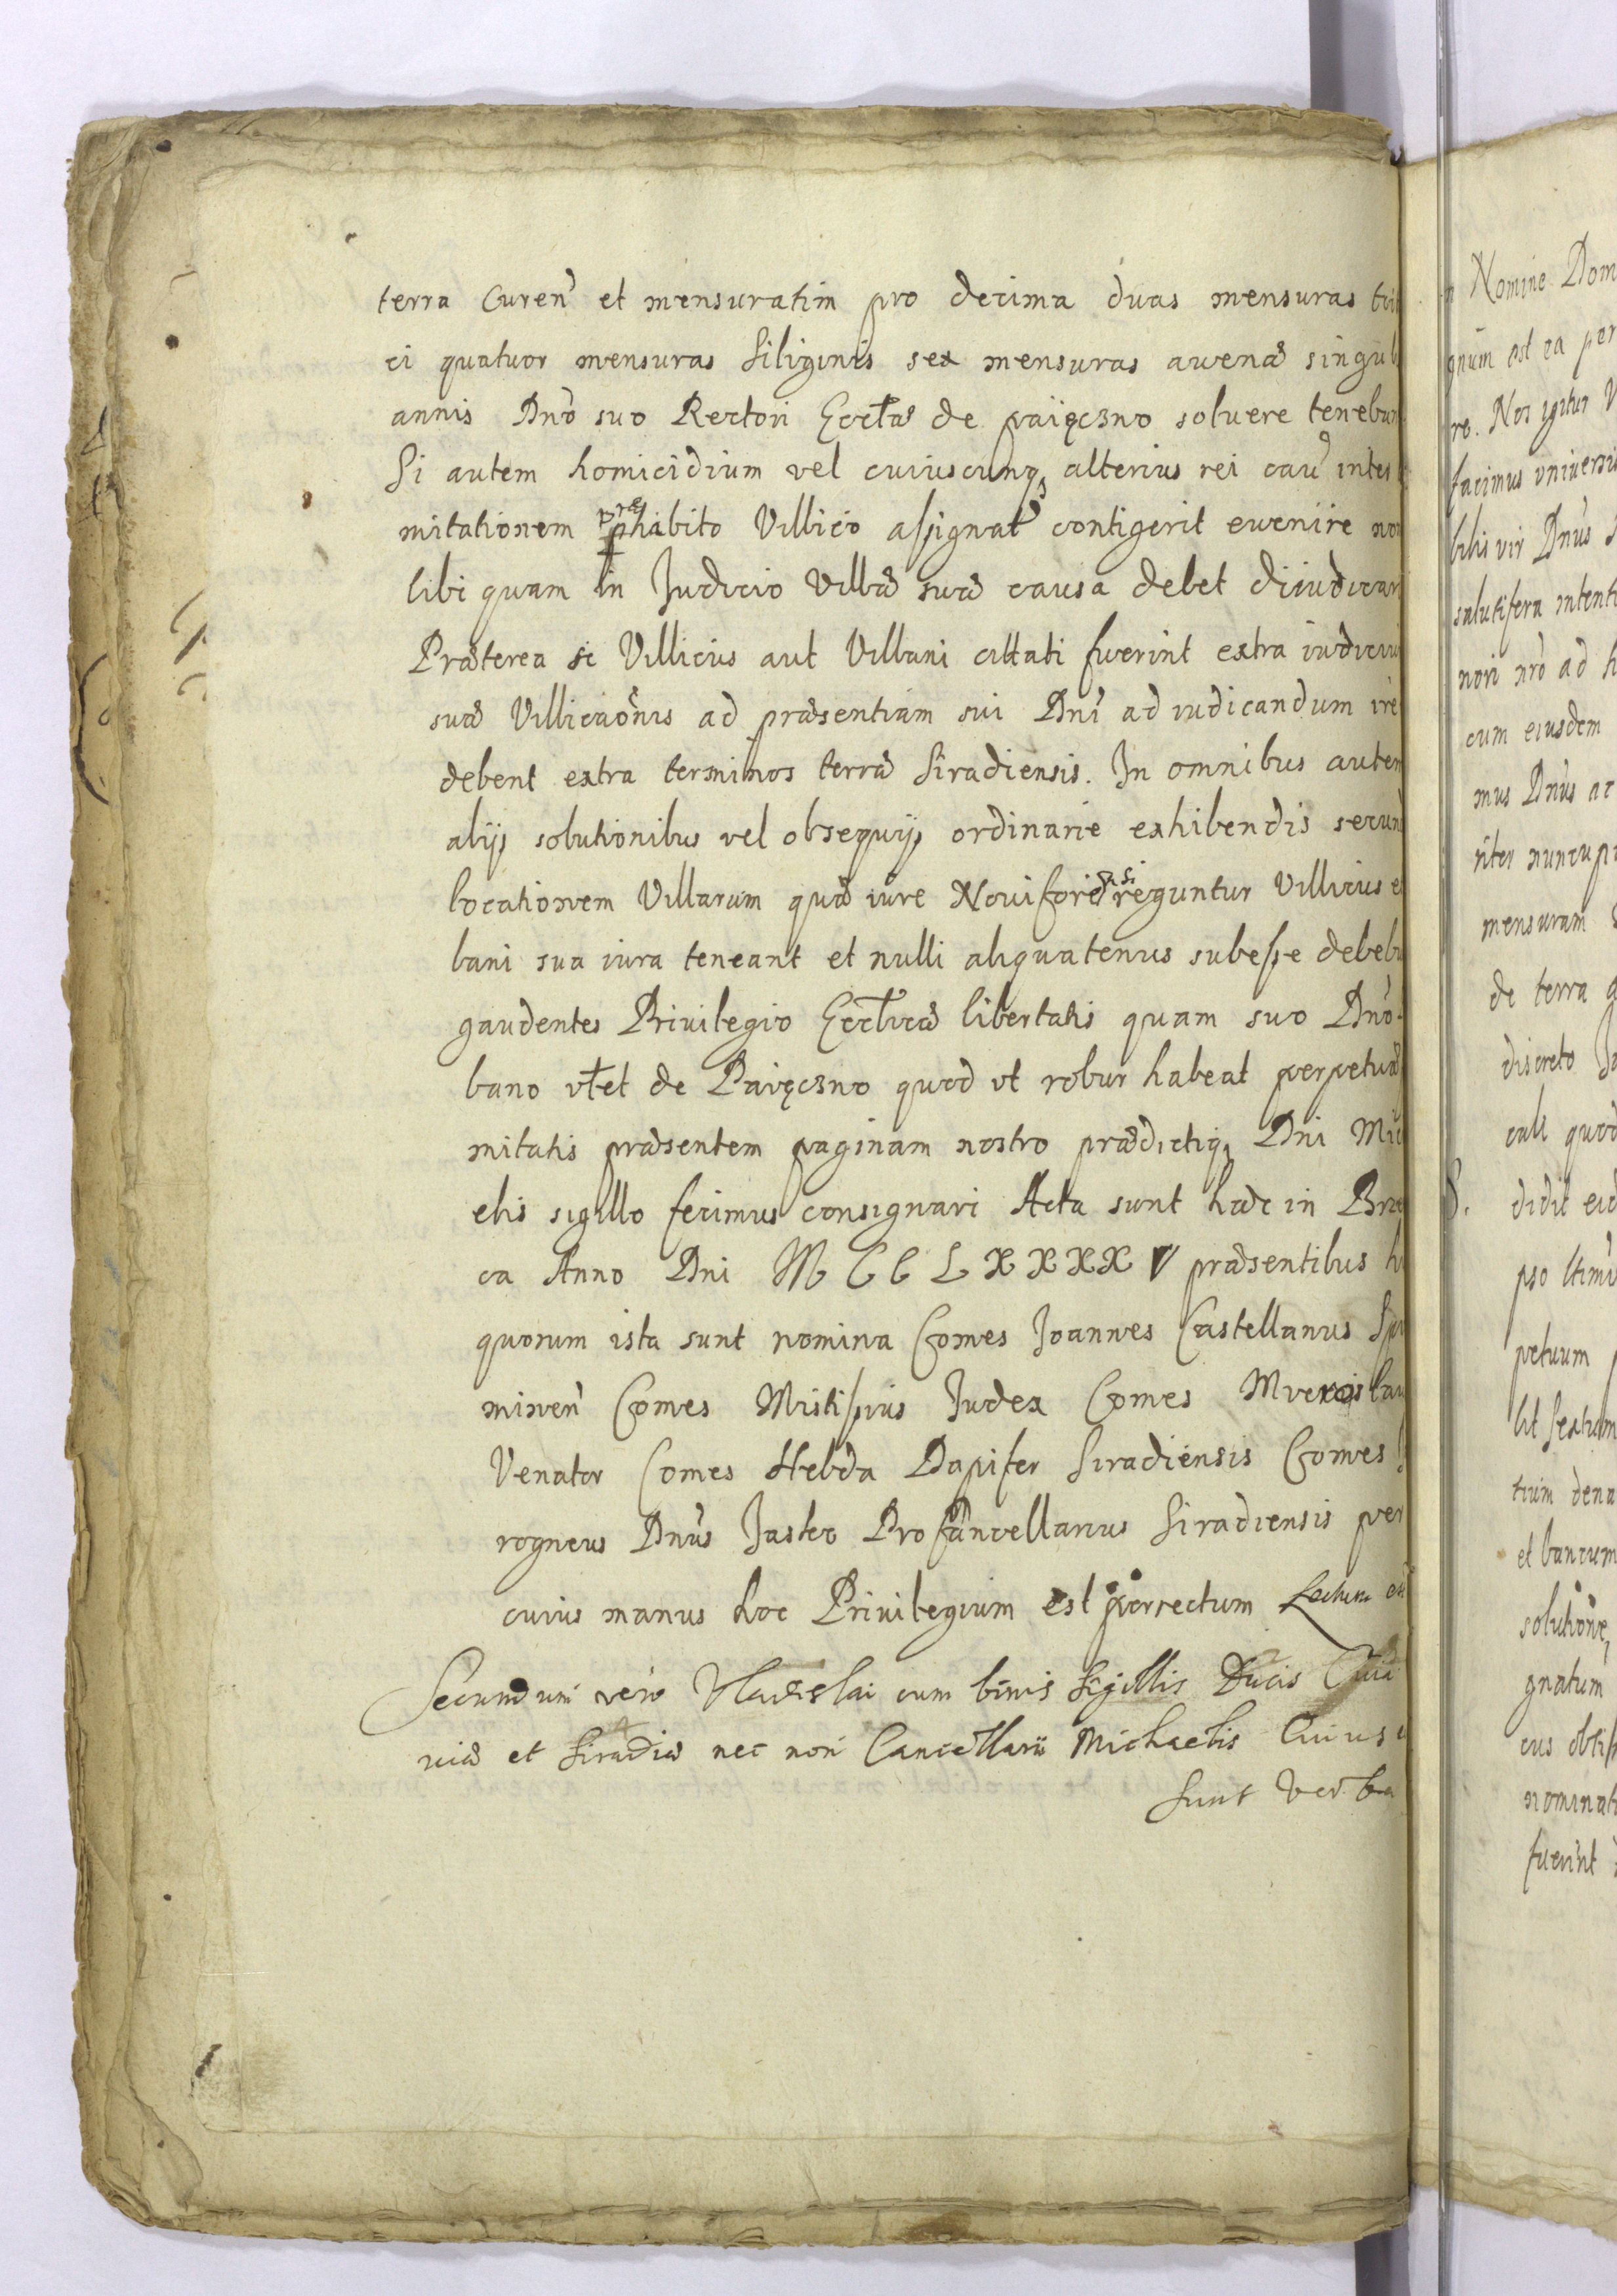 terra Curen̄ et mensuratim pro decima duas mensuras tri
ci quatuor mensuras Siliginis sex mensuras avenæ singul
annis Dnō suo Rectori Eccłæ de paięczno soluere tenebun
Si autem homicidium vel cuiuscunq alterius rei cau inter
mitationem præhabito Villico assignat contigerit evenire non
libi quam in Judicio Villæ suæ causa debet diiudicari
Præterea si Villicus aut Villani cittati fuerint extra iudiciu
suæ Villicaōnis ad præsentiam sui Dnī ad iudicandum ire
debent extra terminos terræ Siradiensis. In omnibus autem
alijs solutionibus vel obsequijs ordinarie exhibendis secund
locationem Villarum quæ iure Noviforensi reguntur Villicus e
lani sua iura teneant et nulli aliquatenus subesse debebu
gaudentes Privilegio Eccłicæ libertatis quam suo Dnō
bano vłet de Paięczno quod ut robur habeat perpetuæ
mitatis præsentem paginam nostro prædictiq Dni Mic
elis sigillo fecimus consignari Acta sunt hæc in Brze
ca Anno Dni M C C L X X X X V præsentibus h
quorum ista sunt nomina Comes Joannes Castellanus Spi
miren̄ Comes Mistissius Judex Comes Mvexoislau
Venator Comes Hebda Dapifer Siradiensis Comes
rogneus Dnūs Jasko Procancellarius Siradiensis per
cuius manus hoc Privilegium est porrectum Lectum
Secundum vero Vladislai cum binis Sigillis Ducis Cuia
viæ et Siradiæ nec non Cancellarii Michaelis Cuius
sunt verba
Nomine Dom
gnum est ea per
re. Nos igitur V
facimus universis
bilis vir Dnūs
salutifera intenti
nori nrō ad h
cum eiusdem
mus Dnūs ac
riter nuncup
mensuram
de terra
discreto Ja
cali quod
didit eid
pso ltimū
petuum p
lit sextum
tium dena
et bancum
solutione
gnatum
cus obtiss
nominat
fuerint